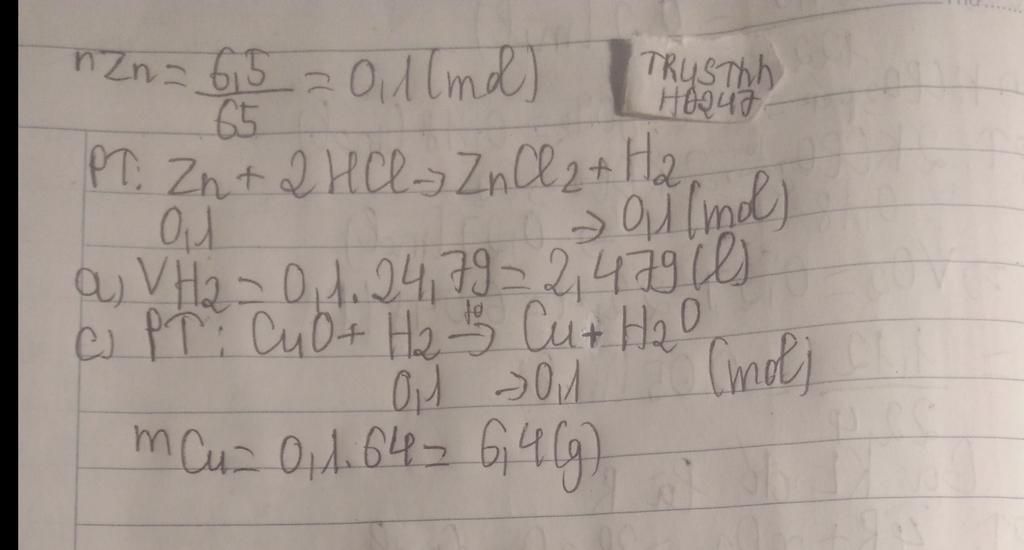 nZn = 6,5/65 = 0,1 (mol)
TRYSThh
H0247
PT: Zn + 2HCl → ZnCl2 + H2
0,1 → 0,1 (mol)
a) VH2 = 0,1.24,79 = 2,479 (l)
c) PT: CuO + H2 →to Cu + H2O
0,1 → 0,1 (mol)
mCu = 0,1.64 = 6,4 (g)